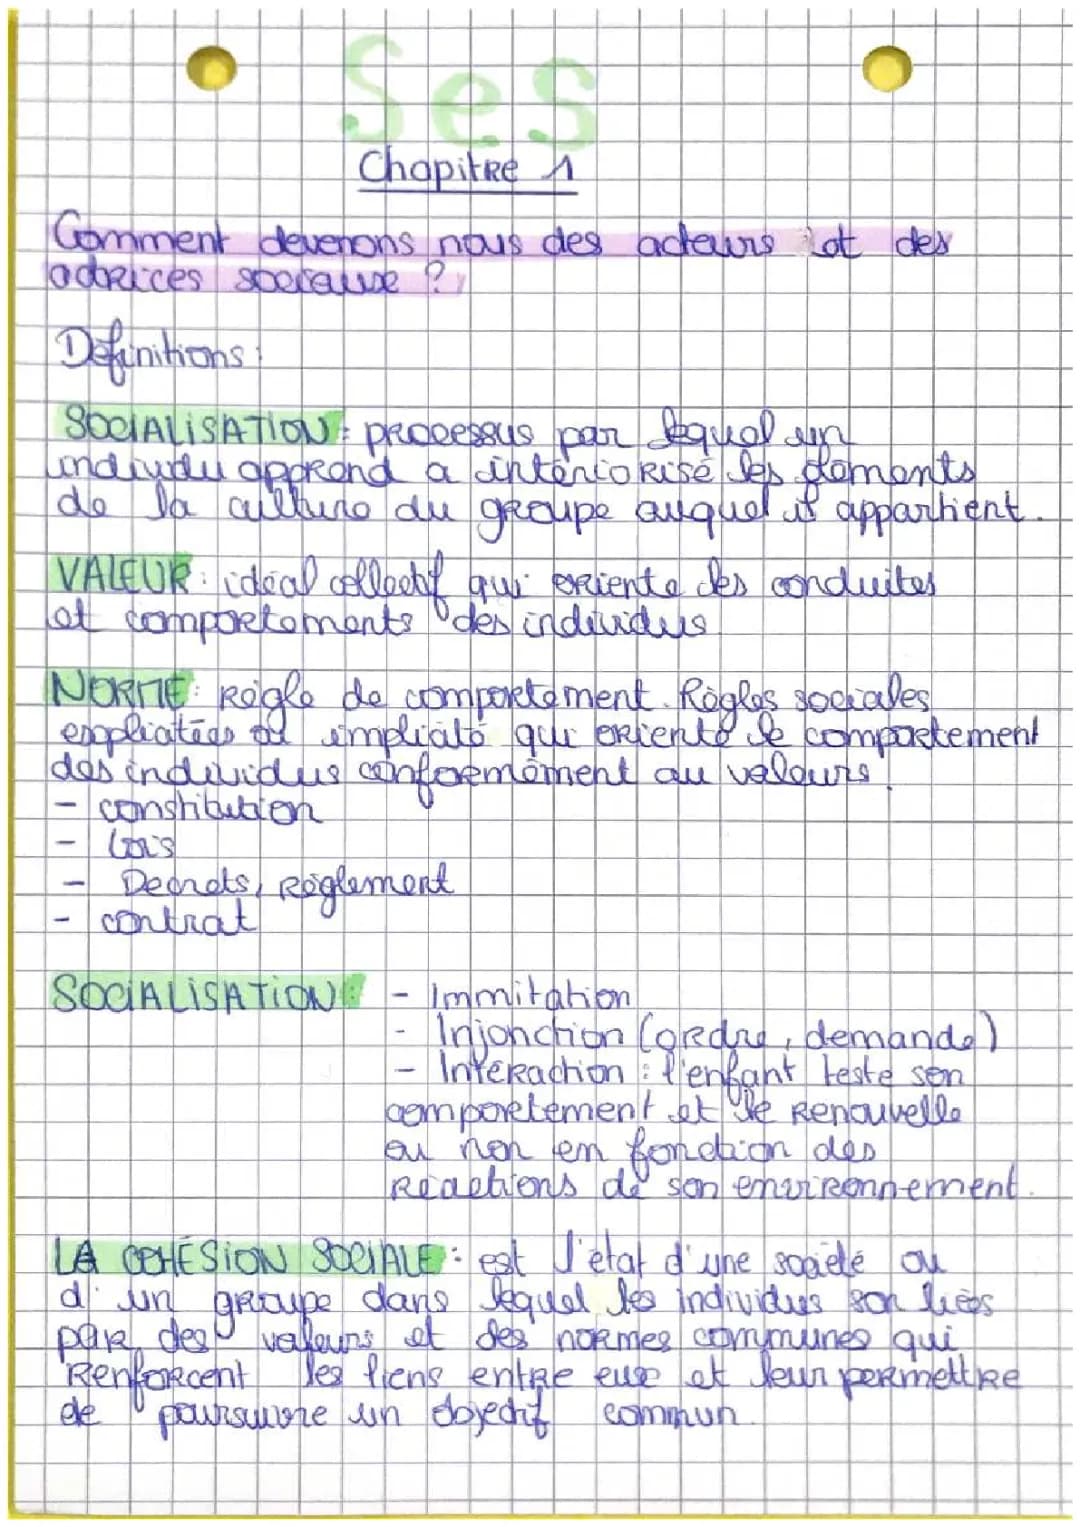 Ses
Chapitre 1
Comment devenons nous des acteurs et des
actrices sociaux ?
Définitions :
SOCIALISATION : processus par lequel un
individu apprend a intériorisé les éléments
de la culture du groupe auquel il appartient.
VALEUR : idéal collectif qui oriente les conduites
et comportements des individus
NORME : Règle de comportement. Règles sociales
explicitées ou implicité qui oriente le comportement
des individus conformément au valeurs.
- constitution
- Lois
- Decrets, Règlement
- contrat
SOCIALISATION : - Immitation
- Injonction (ordre, demande)
- Interaction : l'enfant teste son
comportement et le renouvelle
ou non en fonction des
réactions de son environnement.
LA COHÉSION SOCIALE : est l'état d'une société ou
d'un groupe dans lequel les individus son liées
par des valeurs et des normes communes qui
Renforcent les liens entre eux et leur permettre
de poursuivre un objectif commun.